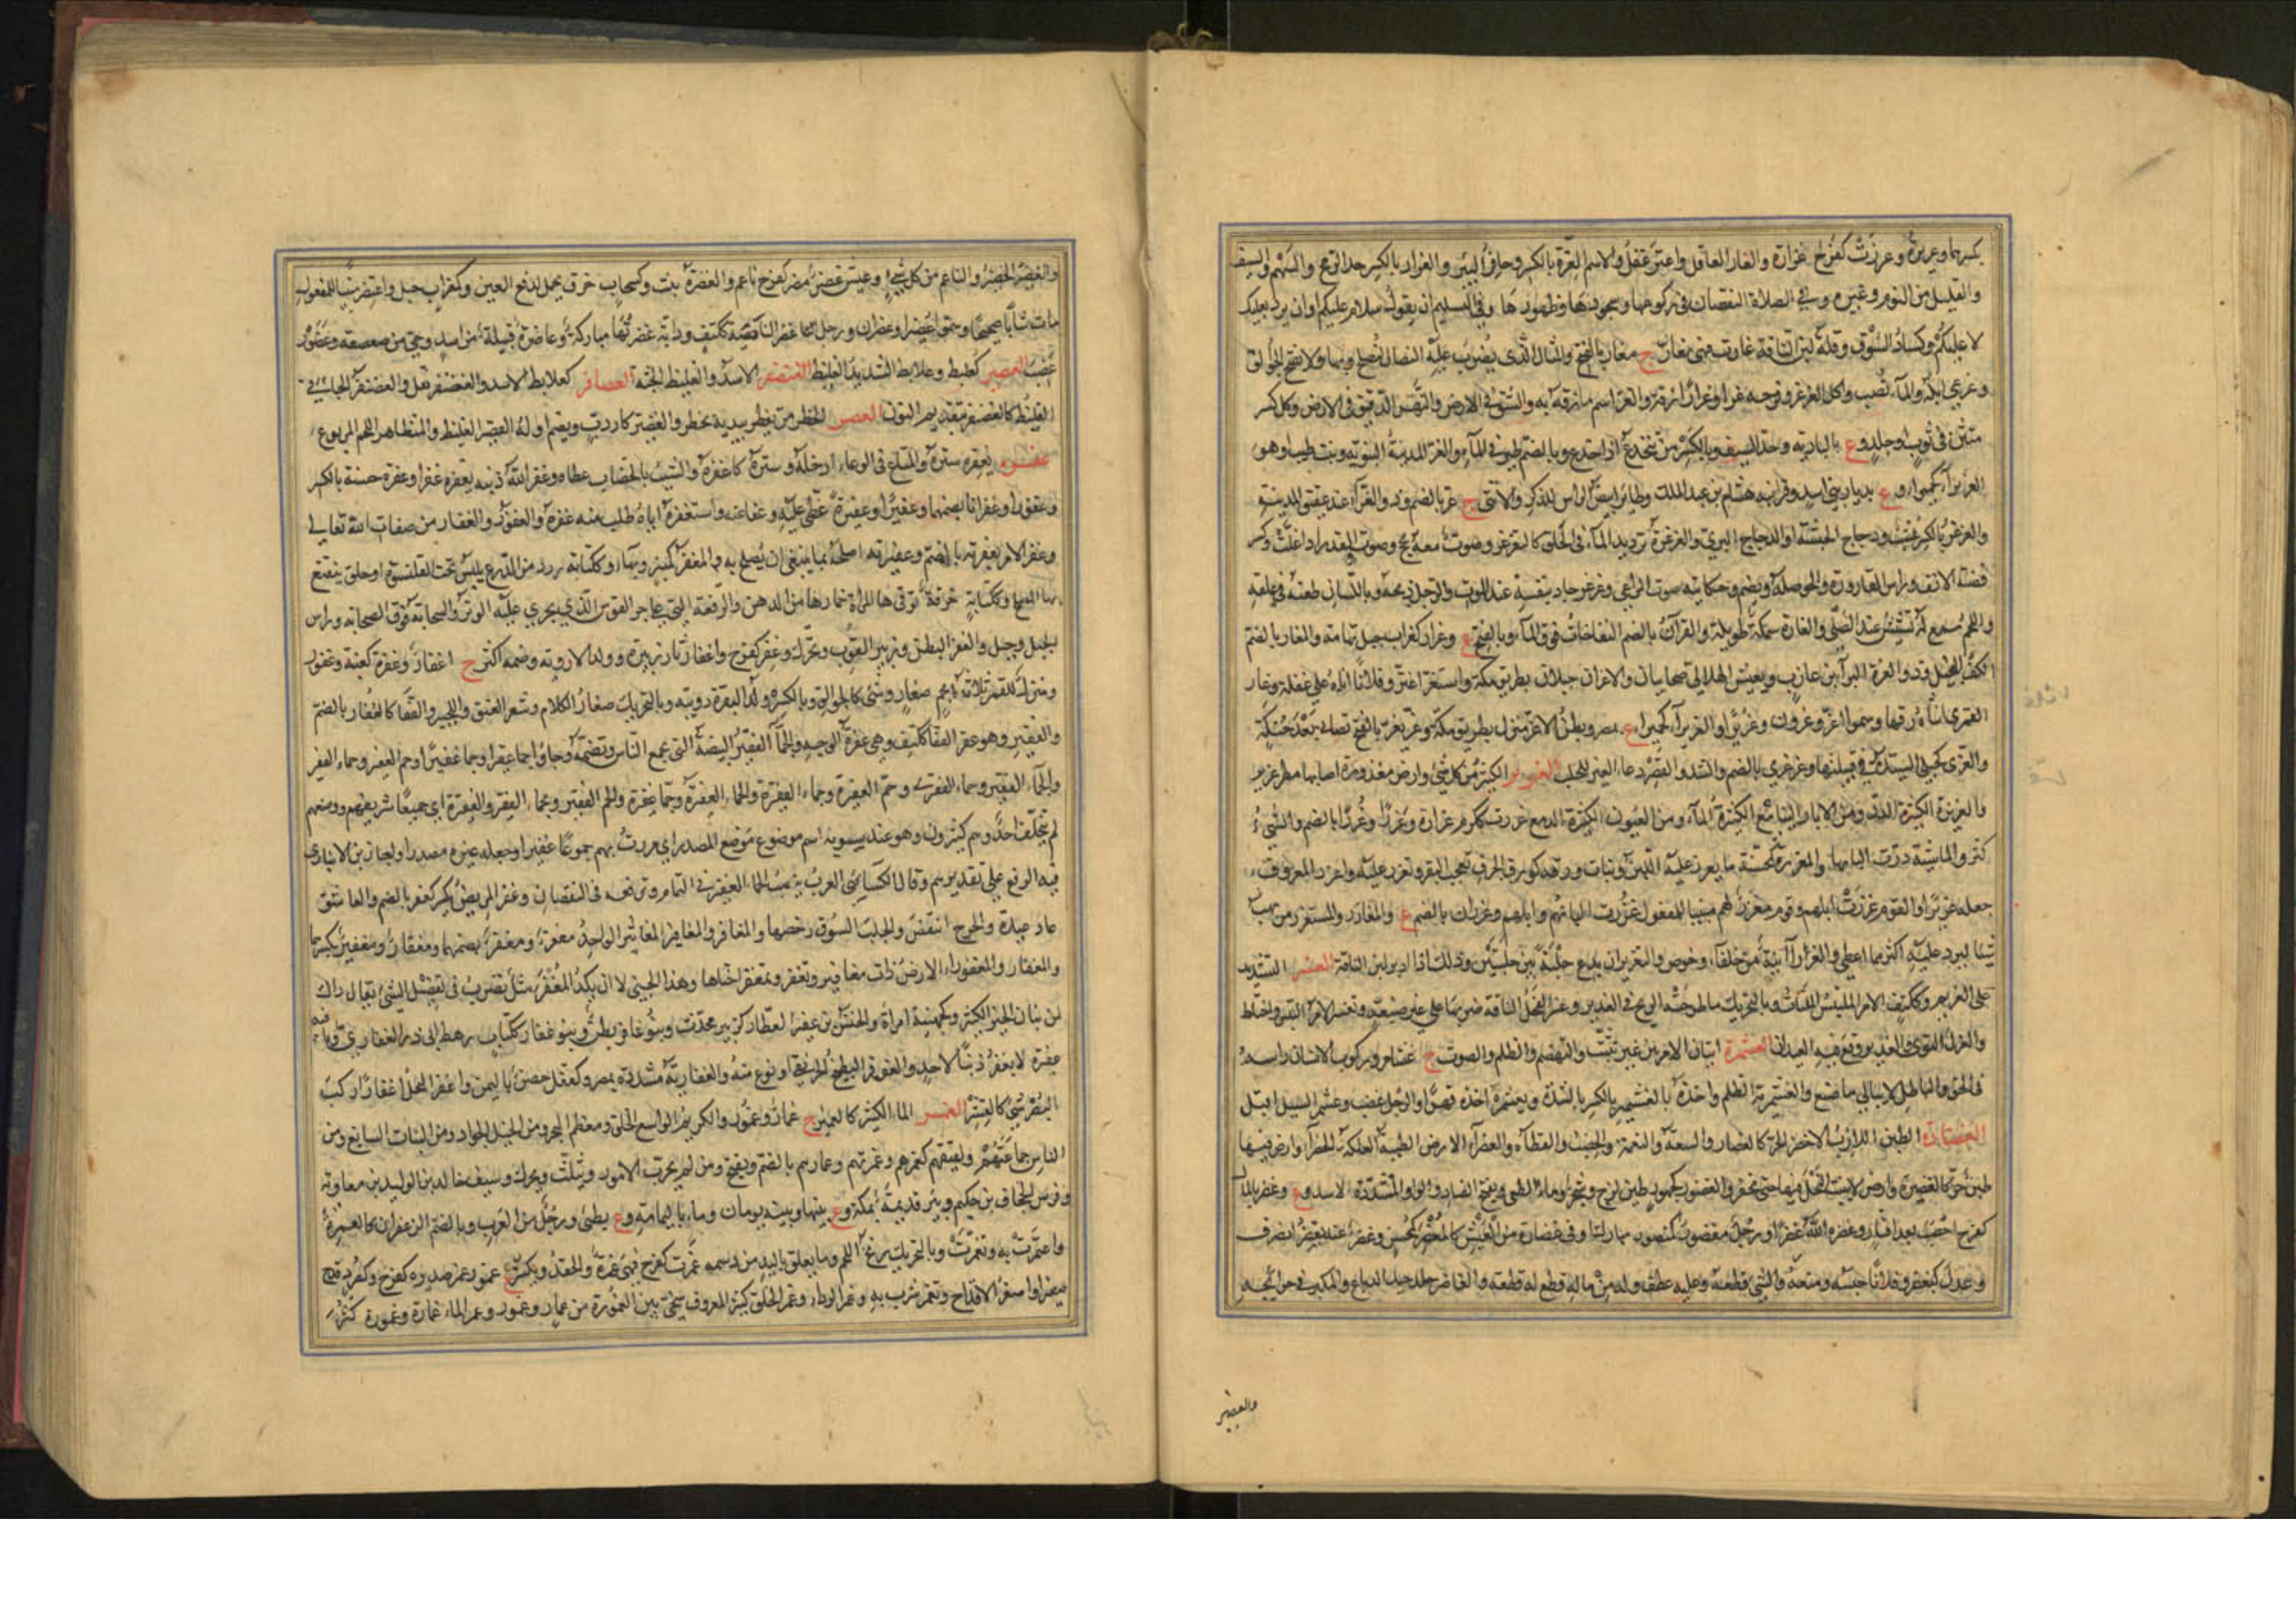 بكسرهما وغريرة وغررت كفرح غرارة والغار الغافل واغتر غفل والاسم الغرة بالكسر وحافر البئر والغرار بالكسر حد الرمح والسهم والسيف
والقليل من النوم وغيره وفي الصلاة النقصان في ركوعها وسجودها وطهورها وفي التسليم ان يقول سلام عليكم او ان يرد بعليك
لا عليكم وكساد السوق وقلة لبن الناقة غارت فهي مغار ج مغار بالفتح والمثال الذي يضرب عليه النصال لتصلح وبهاء ولا تفتح الجوالق
متثن في ثوب او جلد وع بالبادية وحد السيف وبالكسر من ينخدع اذا خدع وبالضم طيور في الماء والغر المدينة النبوية وبنت طيب او هو
الغريراء كحميراء وع بديار بني اسد وفرا ابنه هشام بن عبد الملك وطائر ابيض الراس للذكر والانثى ج غر بالضم وذو الغراء عند عقيق المدينة
والغرغر بالكسر عشب ودجاج الحبشة او الدجاج البري والغرغرة ترديد الماء في الحلق كالتغرغر وصوت معه بحح وصوت القدر اذا غلت وكسر
قصبة الانف وراس القارورة والحوصلة ويضم وحكاية صوت الراعي وغرغر جاد بنفسه عند الموت والرجل ذبحه وبالسنان طعنه في حلقه
واللحم سمع له نشيش عند الصلي والغارة سمكة طويلة والغران بالضم النفاخات فوق الماء وبالفتح ع وغرار كغراب جبل بتهامة والغار بالضم
الكف البخيل وذو الغرة البراء بن عازب ويعيش الهلالي صحابيان والاغران جبلان بطريق مكة واستغر اغتر وفلانا اتاه على غفلة وغار
القمري انثاه زقها وسموا اغر وغرون وغريرا والغريراء كحميراء ع بمصر وبطن الاغر منزل بطريق مكة وغر يغر بالفتح تصابى بعد حنكة
والغرى كحبلى السيدة في قبيلتها وغرغرى بالضم والشد والقصر دعاء العنز للحلب الغزير الكثير من كل شيء وارض مغزورة اصابها مطر غزير
والغزيرة الكثيرة الدر ومن الابار والينابيع الكثيرة الماء ومن العيون الكثيرة الدمع غزرت ككرم غزارة وغزرا وغزرا بالضم والشيء
كثر والماشية درت البانها والمغزرة كمحسنة ما يغزر عليه اللبن ونبات ورقه كورق الحرف تعجب البقر وتغزر عليه واغزر المعروف
جعله غزيرا والقوم غزرت ابلهم وقوم مغزر لهم مبنيا للمفعول غزرت البانهم وابلهم وغزران بالضم ع والمغازر والمستغزر من يهب
شيئا ليرد عليه اكثر مما اعطى والغزر انية من حلفاء وخوص والتغزير ان يدع حلبة بين حلبتين وذلك اذا ادبر لبن الناقة الغسر التشديد
على الغريم وككتف الامر الملتبس الملتاث وبالتحريك ما طرحته الريح في الغدير وغسر الفحل الناقة ضربها على غير ضبعة وتغسر الامر التبس واختلط
والغزل التوى والغدير وقع فيه العيدان الغشمرة اتيان الامر من غير تثبت والتهضم والظلم والصوت ج غشامر وركوب الانسان راسه
في الحق والباطل لا يبالي ما صنع والغشميرية الظلم واخذه بالغشمير بالكسر بالشدة وتغشمره اخذه قهرا والرجل غضب وغشمر السيل اقبل
الغضارة الطين اللازب الاخضر الحر كالغضار والسعة والنعمة والخصب والقطاة والغضراء الارض الطيبة العلكة الخضراء وارض فيها
طين حر كالغضيرة وارض لا ينبت النخل فيها حتى تحفر والغضور كجهور طين لزج وشجر وماء لطيئ وبفتح الضاد والواو المشددة الاسد وع وغضر بالمال
كفرح اخصب بعد اقتار وغضره الله غضرا ورجل مغضور كمنصور مبارك او في غضارة من العيش كالمغضر كمحسن وغضر عنه يغضر انصرف
وعدل كتغضر وفلانا حبسه ومنعه والشيء قطعه وعليه عطف وله من ماله قطع له قطعة والغاضر جلد جيد الدباغ والمبكر في حوائجه
والغضير
والغضير الخضير والناعم من كل شيء وعيش غضر مضر كفرح ناعم والغضرة نبت وكسحاب خزف يحمل لدفع العين وكغراب جبل واغتضر مبنيا للمفعول
مات شابا صحيحا وسموا غضيرا وغضران
غضب الغضبر كعلبط وعلابط الشديد الغليظ الغضنفر الاسد والغليظ الجثة الغضافر كعلابط الاسد والغضنفر ثقل والغضنفر الجافي
الغليظ كالغضنفر بتقديم النون الغطر الخطر مر يغطر بيديه يخطر والغطير كاردب ويضم اوله القصير الغليظ والمتظاهر اللحم المربوع
غفره يغفره ستره والمتاع في الوعاء ادخله وستره كاغفره والشيب بالخضاب غطاه وغفر الله له ذنبه يغفره غفرا وغفرة حسنة بالكسر
وغفورا وغفرانا بضمهما وغفيرا وغفيرة غطى عليه وعفا عنه واستغفره اياه طلب منه غفره والغفور والغفار من صفات الله تعالى
وغفر الامر بغفرته بالضم وغفيرته اصلحه بما ينبغي ان يصلح به والمغفر كمنبر وبهاء وككتابة زرد من الدرع يلبس تحت القلنسوة او حلق يتقنع
بها المتسلح وككتابة خرقة توقي بها المراة خمارها من الدهن والرقعة التي على حز القوس الذي يجري عليه الوتر والسحابة فوق السحابة وراس
الجبل وجبل والغفر البطن وزئبر الثوب ويحرك وغفر كفرح واغفار ثار زئبره وولد الاروية وضمه اكثر ج اغفار وغفرة كعنبة وغفور
ومنزل للقمر ثلاثة انجم صغار وشيء كالجوالق وبالكسر ولد البقرة ودويبة وبالتحريك صغار الكلا وشعر العنق واللحيين والقفا كالغفار بالضم
والغفير وهو غفر القفا ككتف وهي غفرة الوجه والجماء الغفير البيضة التي تجمع الناس وتضمهم وجاؤا جما غفيرا وجما غفيرا وجم الغفير وجماء الغفير
لم يتخلف احد وهم كثيرون وهو عند سيبويه اسم موضوع موضع المصدر اي مررت بهم جموعا غفيرا وجعله غيره مصدرا واجاز ابن الانباري
فيه الرفع على تقدير هم وقال الكسائي العرب تنصب الجماء الغفير في التمام وترفعه في النقصان وغفر المريض نكس كغفر بالضم والعاشق
عاد عيده والجرح انتقض والجلب السوق رخصها والمغافر والمغافير المغاثير الواحد مغفر ومغفر بضمهما ومغفار ومغفير بكسرهما
لمن ينال الخير الكثير وكجهينة امراة والحسن بن غفير العطار كزبير محدث وبنو غافر بطن وبنو غفار ككتاب رهط ابي ذر الغفاري وما فيه
غفيرة لا يغفر ذنبا لاحد والغوفر البطيخ الخريفي او نوع منه والغفارية مشددة بمصر وكقفل حصن باليمن واغفر النخل اغفارا ركب
البسر شيء كالقشر الغمر الماء الكثير كالغمير ج غمار وغمور والكريم الواسع الخلق ومعظم البحر ومن الخيل الجواد ومن الثياب السابغ ومن
الناس جماعتهم ولفيفهم كغمرهم وغمرتهم وغمارهم بالضم ويفتح ومن لم يجرب الامور ويثلث ويحرك وسيف خالد بن الوليد بن معاوية
وفرس الجحاف بن حكيم وبئر قديمة بمكة وع بينها وبينه يومان وماء باليمامة وع بطيئ ورجل من العرب وبالضم الزعفران كالغمرة
واغتمرت به وتغمرت وبالتحريك زنخ اللحم وما يعلق باليد من دسمه غمرت كفرح فهي غمرة والحقد ويكسر ج غمور غمر صدره كفرح وكصرد قدح
صغير او اصغر الاقداح وتغمر شرب به وغمر الرداء وغمر الخلق كثير المعروف سخي بين الغمورة من غمار وغمور وغمر الماء غمارة وغمورة كثر